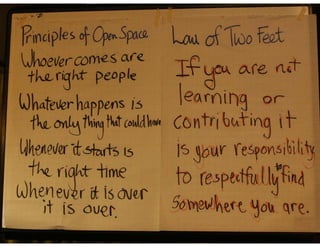 Principles of Open Space
Whoever comes are
the right people
Whatever happens is
the only thing that could have
Whenever it starts is
the right time
Whenever it is over
it is over.
Law of Two Feet
If you are not
learning or
contributing it
is your responsibility
to respectfully to find
Somewhere you are.